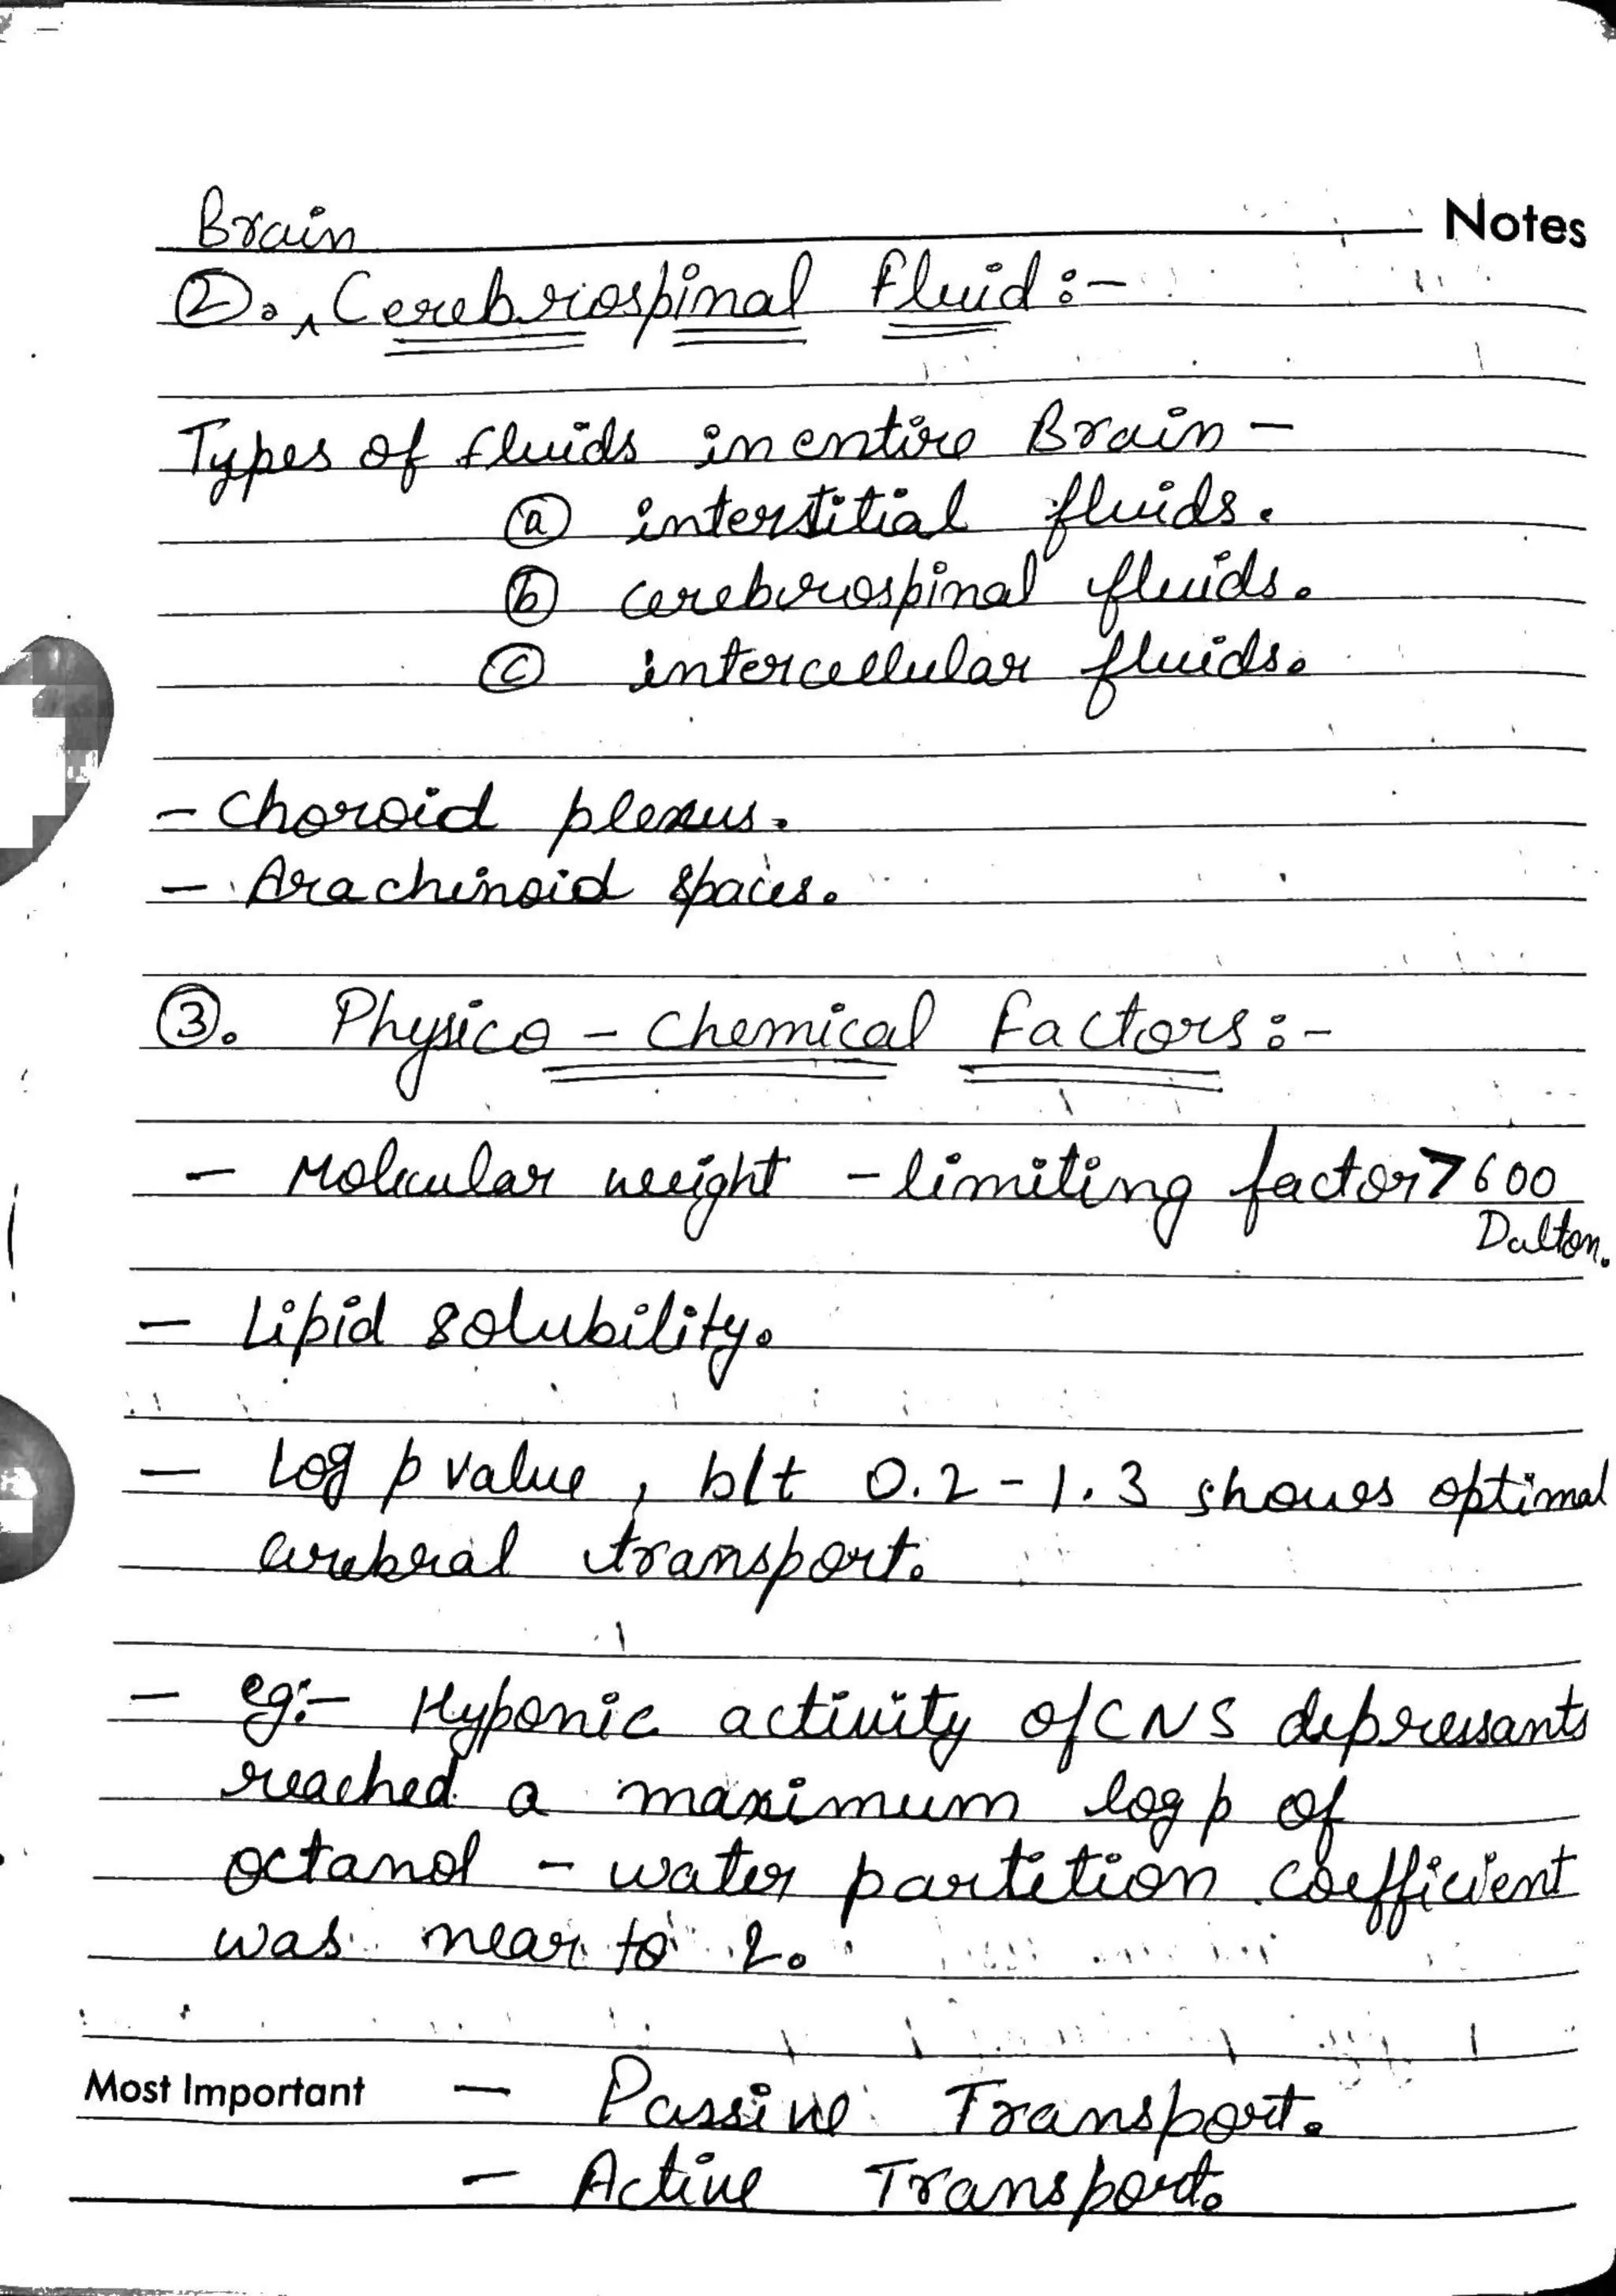 Notes
Brain
②. ^ Cerebrospinal fluid :-
Types of fluids in entire Brain -
ⓐ interstitial fluids.
ⓑ cerebrospinal fluids.
ⓒ intercellular fluids.
- Choroid plexus.
- Arachinoid spaces.
③. Physico - Chemical Factors :-
- Molecular weight - limiting factor > 600
Dalton.
- Lipid solubility.
- Log p value, b/t 0.2 - 1.3 shows optimal
cerebral transport.
- eg:- Hyponic activity of CNS depressants
reached a maximum log p of
octanol - water partition coefficient
was near to 2.
Most Important - Passive Transport.
- Active Transport.